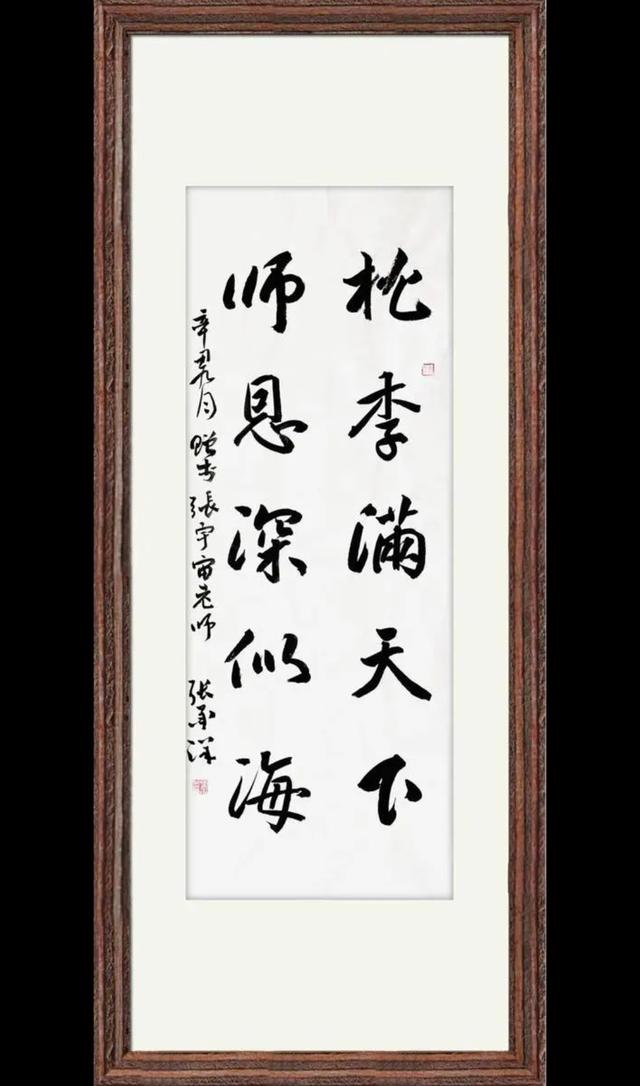 桃李满天下
师恩深似海
辛丑九月 赠书 張宇宙老师 张